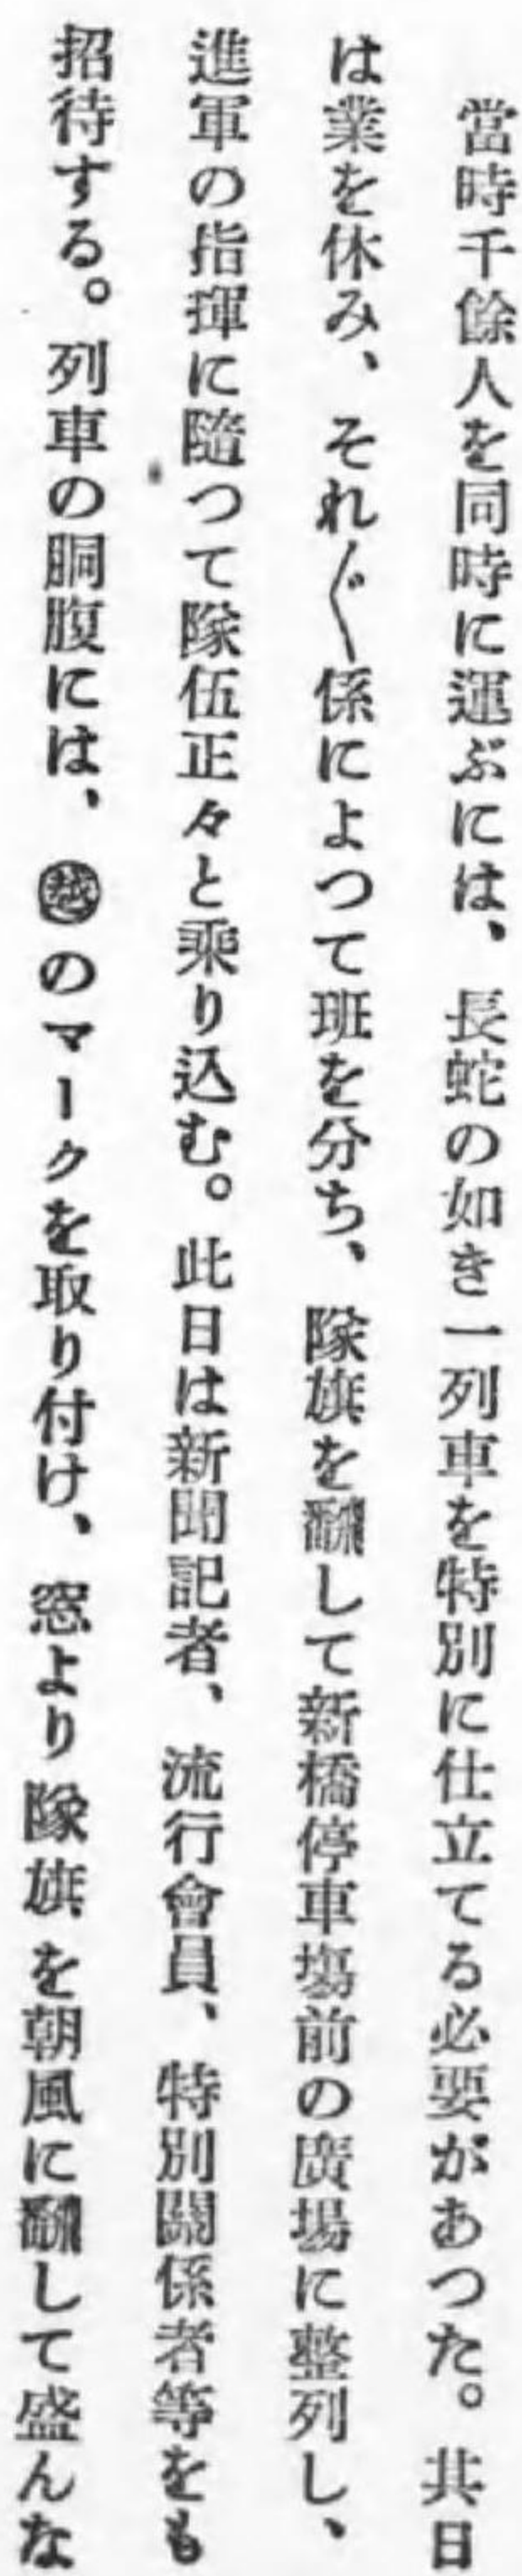 當時千餘人を同時に運ぶには、長蛇の如き一列車を特別に仕立てる必要があつた。其日
は業を休み、それ〴〵係によつて班を分ち、隊旗を飜して新橋停車場前の廣場に整列し、
進軍の指揮に隨つて隊伍正々と乘り込む。此日は新聞記者、流行會員、特別關係者等をも
招待する。列車の胴腹には、㊙のマークを取り付け、窓より隊旗を朝風に飜して盛んな